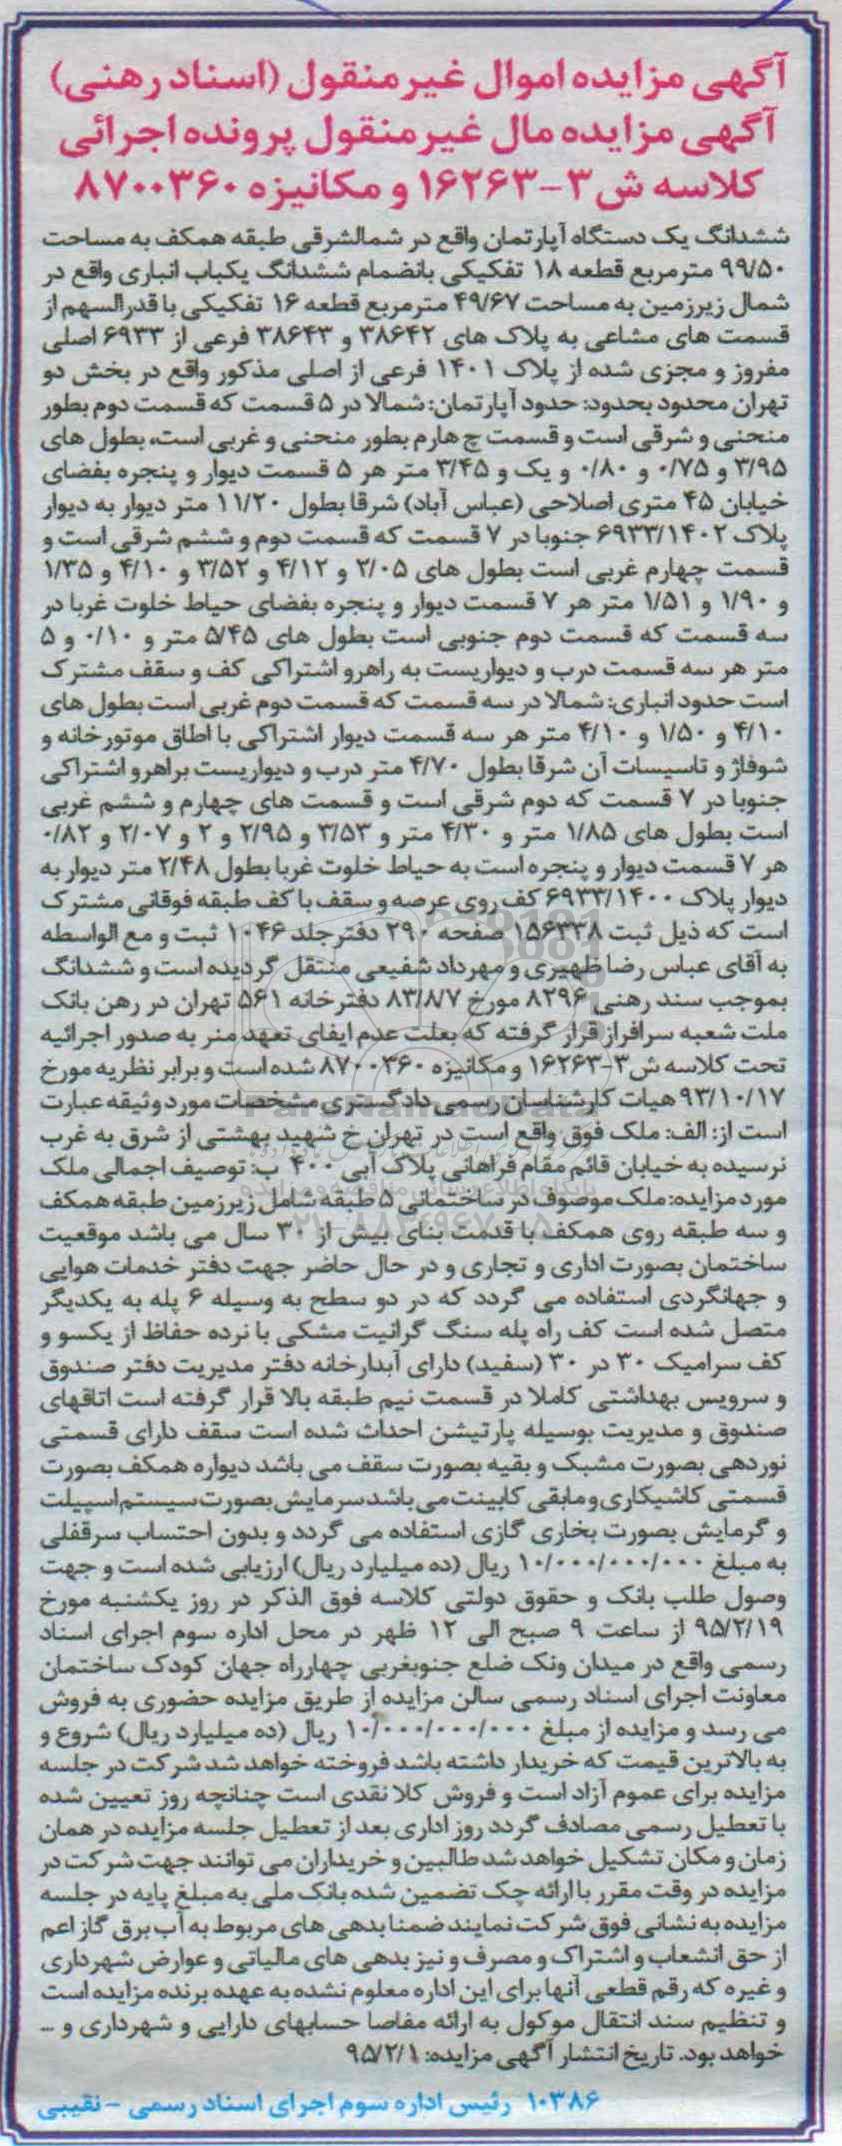 آگهی مزایده اموال غیر منقول (اسناد رهنی)
آگهی مزایده مال غیر منقول پرونده اجرائی
کلاسه ش۳-۱۶۲۶۳ و مکانیزه ۸۷۰۰۳۶۰
ششدانگ یک دستگاه آپارتمان واقع در شمالشرقی طبقه همکف به مساحت
۹۹/۵۰ مترمربع قطعه ۱۸ تفکیکی بانضمام ششدانگ یکباب انباری واقع در
شمال زیرزمین به مساحت ۴۹/۶۷ مترمربع قطعه ۱۶ تفکیکی با قدرالسهم از
قسمت های مشاعی به پلاک های ۳۸۶۴۲ و ۳۸۶۴۳ فرعی از ۶۹۳۳ اصلی
مفروز و مجزی شده از پلاک ۱۴۰۱ فرعی از اصلی مذکور واقع در بخش دو
تهران محدود بحدود: حدود آپارتمان: شمالا در ۵ قسمت که قسمت دوم بطور
منحنی و شرقی است و قسمت چهارم بطور منحنی و غربی است، بطول های
۳/۹۵ و ۰/۷۵ و ۰/۸۰ و یک و ۳/۴۵ متر هر ۵ قسمت دیوار و پنجره بفضای
خیابان ۴۵ متری اصلاحی (عباس آباد) شرقا بطول ۱۱/۲۰ متر دیوار به دیوار
پلاک ۶۹۳۳/۱۴۰۲ جنوبا در ۷ قسمت که قسمت دوم و ششم شرقی است و
قسمت چهارم غربی است بطول های ۲/۰۵ و ۴/۱۲ و ۳/۵۲ و ۴/۱۰ و ۱/۳۵
و ۱/۹۰ و ۱/۵۱ متر هر ۷ قسمت دیوار و پنجره بفضای حیاط خلوت غربا در
سه قسمت که قسمت دوم جنوبی است بطول های ۵/۴۵ متر و ۰/۱۰ و ۵
متر هر سه قسمت درب و دیواریست به راهرو اشتراکی کف و سقف مشترک
است حدود انباری: شمالا در سه قسمت که قسمت دوم غربی است بطول های
۴/۱۰ و ۱/۵۰ و ۴/۱۰ متر هر سه قسمت دیوار اشتراکی با اطاق موتورخانه و
شوفاژ و تاسیسات آن شرقا بطول ۴/۷۰ متر درب و دیواریست براهرو اشتراکی
جنوبا در ۷ قسمت که دوم شرقی است و قسمت های چهارم و ششم غربی
است بطول های ۱/۸۵ متر و ۴/۳۰ متر و ۳/۵۳ و ۲/۹۵ و ۲ و ۲/۰۷ و ۰/۸۲
هر ۷ قسمت دیوار و پنجره است به حیاط خلوت غربا بطول ۲/۴۸ متر دیوار به
دیوار پلاک ۶۹۳۳/۱۴۰۰ کف روی عرصه و سقف با کف طبقه فوقانی مشترک
است که ذیل ثبت ۱۵۶۳۳۸ صفحه ۲۹۰ دفتر جلد ۱۰۴۶ ثبت و مع الواسطه
به آقای عباس رضا ظهیری و مهرداد شفیعی منتقل گردیده است و ششدانگ
بموجب سند رهنی ۸۲۹۶ مورخ ۸۳/۸/۷ دفترخانه ۵۶۱ تهران در رهن بانک
ملت شعبه سرافراز قرار گرفته که بعلت عدم ایفای تعهد منر به صدور اجرائیه
تحت کلاسه ش۳-۱۶۲۶۳ و مکانیزه ۸۷۰۰۳۶۰ شده است و برابر نظریه مورخ
۹۳/۱۰/۱۷ هیات کارشناسان رسمی دادگستری مشخصات مورد وثیقه عبارت
است از: الف: ملک فوق واقع است در تهران خ شهید بهشتی از شرق به غرب
نرسیده به خیابان قائم مقام فراهانی پلاک آبی ۴۰۰ ب: توصیف اجمالی ملک
مورد مزایده: ملک موصوف در ساختمانی ۵ طبقه شامل زیرزمین طبقه همکف
و سه طبقه روی همکف با قدمت بنای بیش از ۳۰ سال می باشد موقعیت
ساختمان بصورت اداری و تجاری و در حال حاضر جهت دفتر خدمات هوایی
و جهانگردی استفاده می گردد که در دو سطح به وسیله ۶ پله به یکدیگر
متصل شده است کف راه پله سنگ گرانیت مشکی با نرده حفاظ از یکسو و
کف سرامیک ۳۰ در ۳۰ (سفید) دارای آبدارخانه دفتر مدیریت دفتر صندوق
و سرویس بهداشتی کاملا در قسمت نیم طبقه بالا قرار گرفته است اتاقهای
صندوق و مدیریت بوسیله پارتیشن احداث شده است سقف دارای قسمتی
نوردهی بصورت مشبک و بقیه بصورت سقف می باشد دیواره همکف بصورت
قسمتی کاشیکاری و مابقی کابینت می باشد سرمایش بصورت سیستم اسپیلت
و گرمایش بصورت بخاری گازی استفاده می گردد و بدون احتساب سرقفلی
به مبلغ ۱۰/۰۰۰/۰۰۰/۰۰۰ ریال (ده میلیارد ریال) ارزیابی شده است و جهت
وصول طلب بانک و حقوق دولتی کلاسه فوق الذکر در روز یکشنبه مورخ
۹۵/۲/۱۹ از ساعت ۹ صبح الی ۱۲ ظهر در محل اداره سوم اجرای اسناد
رسمی واقع در میدان ونک ضلع جنوبغربی چهارراه جهان کودک ساختمان
معاونت اجرای اسناد رسمی سالن مزایده از طریق مزایده حضوری به فروش
می رسد و مزایده از مبلغ ۱۰/۰۰۰/۰۰۰/۰۰۰ ریال (ده میلیارد ریال) شروع و
به بالاترین قیمت که خریدار داشته باشد فروخته خواهد شد شرکت در جلسه
مزایده برای عموم آزاد است و فروش کلا نقدی است چنانچه روز تعیین شده
با تعطیل رسمی مصادف گردد روز اداری بعد از تعطیل جلسه مزایده در همان
زمان و مکان تشکیل خواهد شد طالبین و خریداران می توانند جهت شرکت در
مزایده در وقت مقرر با ارائه چک تضمین شده بانک ملی به مبلغ پایه در جلسه
مزایده به نشانی فوق شرکت نمایند ضمنا بدهی های مربوط به آب برق گاز اعم
از حق انشعاب و اشتراک و مصرف و نیز بدهی های مالیاتی و عوارض شهرداری
و غیره که رقم قطعی آنها برای این اداره معلوم نشده به عهده برنده مزایده است
و تنظیم سند انتقال موکول به ارائه مفاصا حسابهای دارایی و شهرداری و ...
خواهد بود. تاریخ انتشار آگهی مزایده: ۹۵/۲/۱
۱۰۳۸۶ رئیس اداره سوم اجرای اسناد رسمی - نقیبی